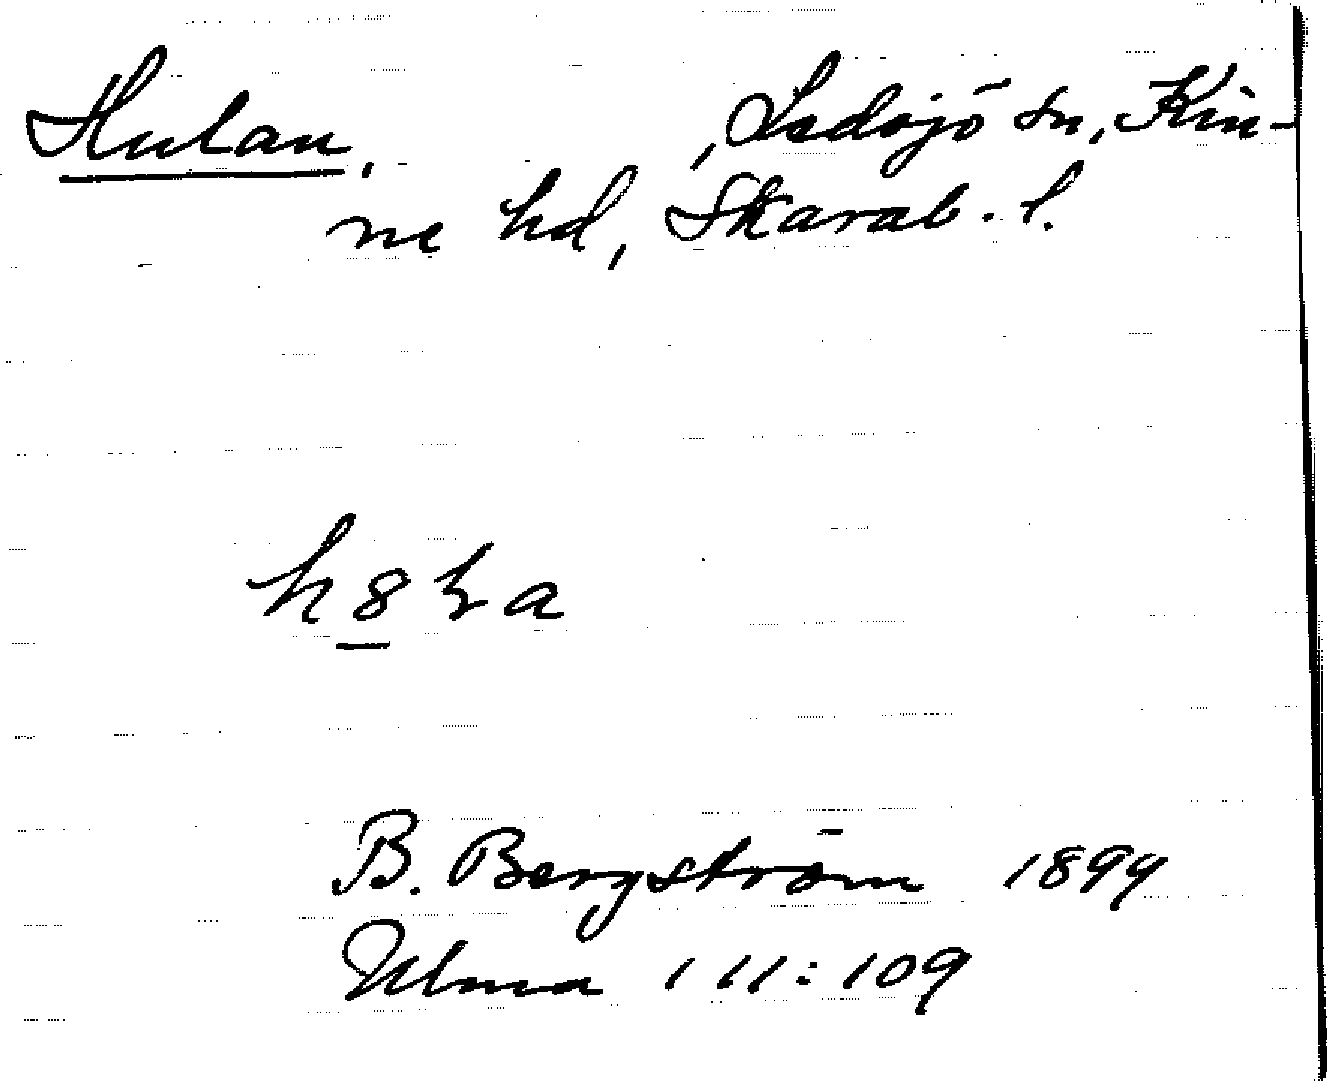 Hulan, , Ledsjö sn, Kin-
ne hd, Skarab. l.
B. Bergström 1899
Ulma 111:109